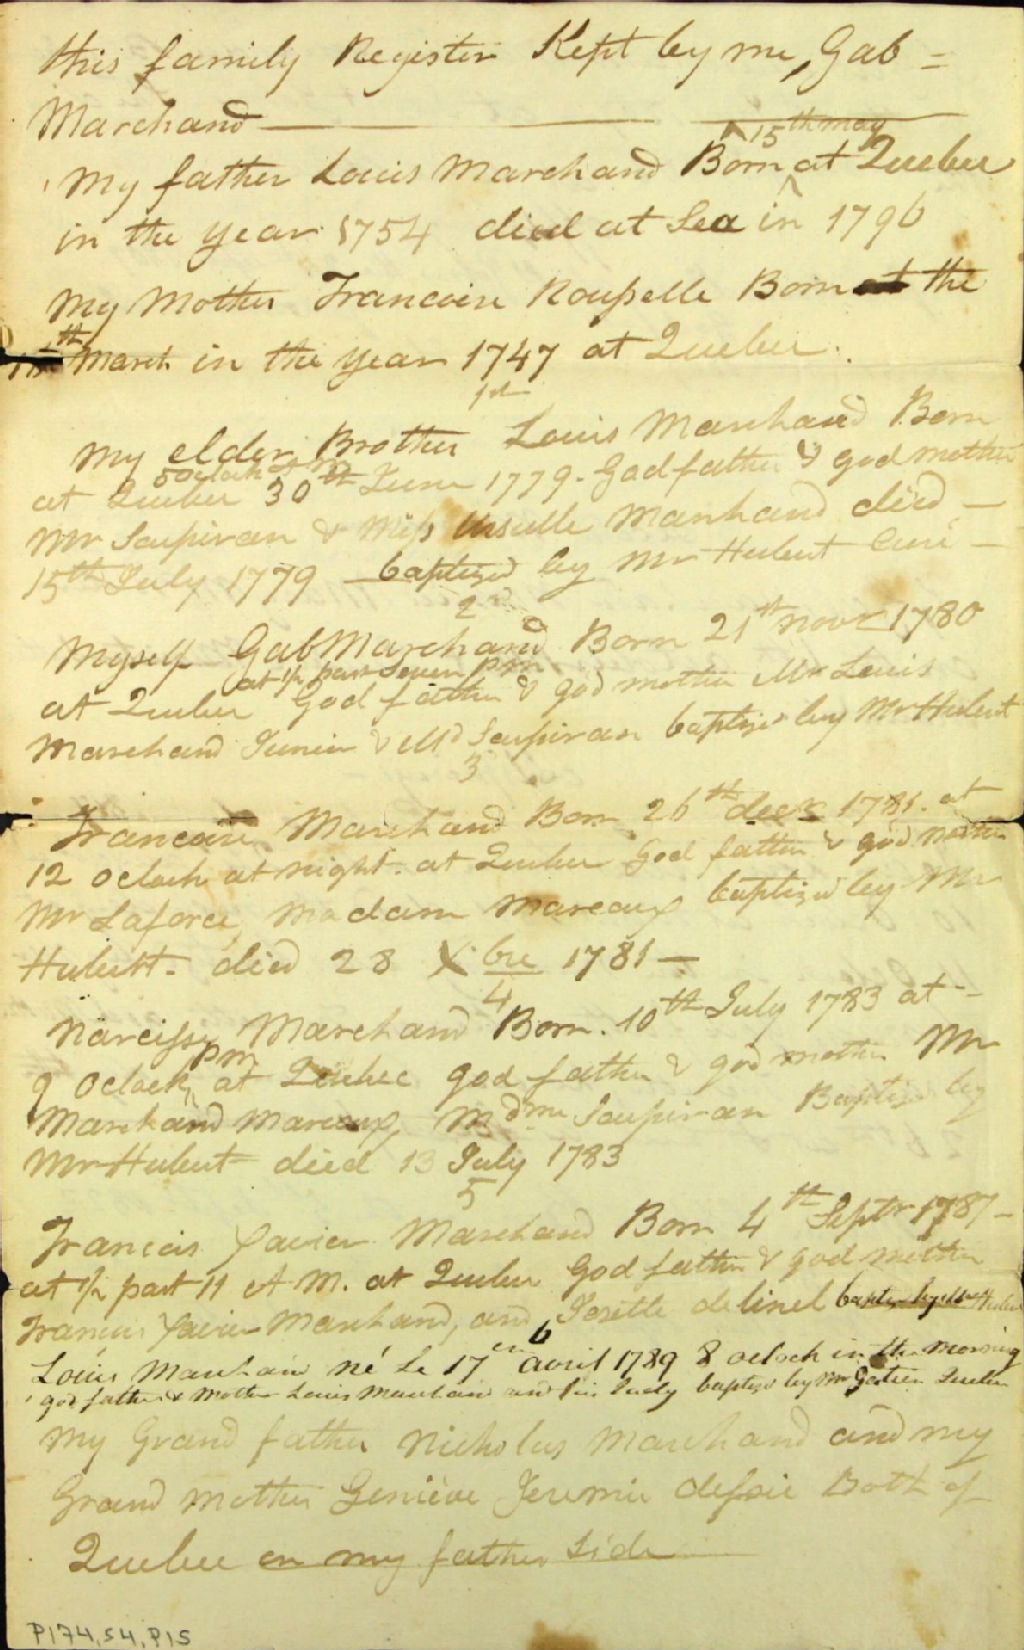 this family Register Kept by me, Gab =
Marchand
15th may
My father Louis Marchand Born at Quebec
in the year 1754 died at Sea in 1796
My Mother Francoise Roupelle Born at the
th March in the year 1747 at Quebec.
1st
My elder Brother Louis Marchand Born
5 oclock
at Quebec 30th June 1779. Godfather & god mother
Mr Soupiran & Miss Ursulle Marchand died
15th July 1779 baptized by Mr Hubert Curé
2nd
Myself Gab Marchand Born 21th novr 1780
at ½ past Seven pm
at Quebec God father & god mother Mr Louis
Marchand Junier & Md Soupiran baptize by Mr Hubert
3
Francoise Marchand Born 26th decr 1781. at
12 oclock at night. at Quebec God father & god mother
Mr Laforce, Madam Mareoux baptized by Mr
Hubert. died 28 Xbre 1781
4
Narcisse Marchand Born. 10th July 1783 at
pm
9 oclock at Quebec god father & god mother Mr
Marchand Mareoux, Mdme Soupiran Baptize by
Mr Hubert died 13 July 1783
5
Francois Xavier Marchand Born 4th Septr 1787
at ½ past 11 A M. at Quebec God father & god mother
Francois Xavier Marchand, and Josette de linel baptize by Mr Hubert
6
Louis Marchand né le 17em avril 1789 8 oclock in the morning
god father & mother Louis Marchand and his Lady baptize by Mr Gatien Quebec
My Grand father Nicholas Marchand and my
Grand mother Geniève Jeremie Both of
Quebec on my father Side
P174,S4,P15